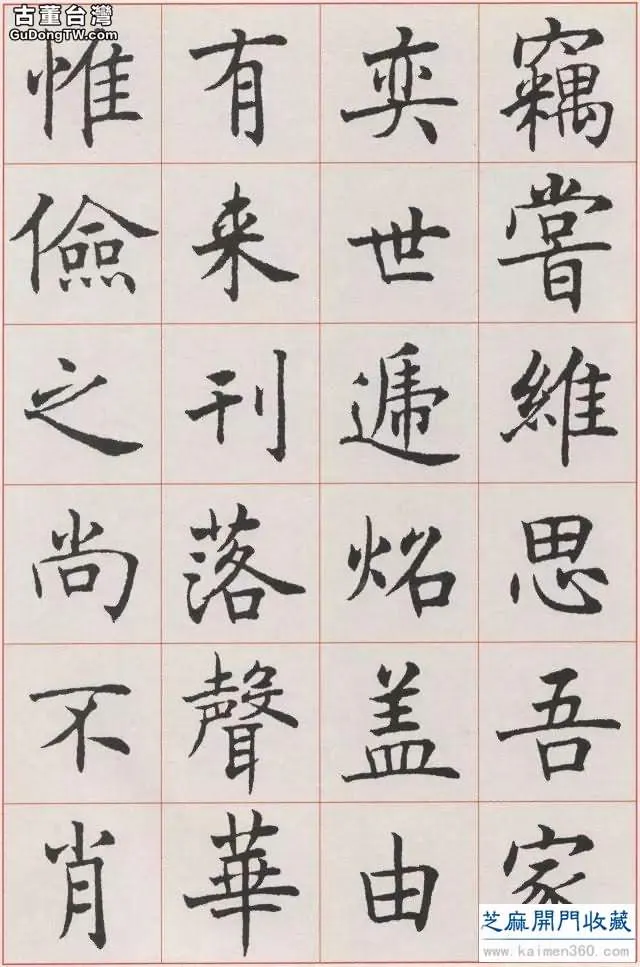 古董台灣
GuDongTW.com
竊嘗維思吾家
奕世遞炤盖由
有来刊落聲華
惟儉之尚不肖
芝麻開門收藏
www.kaimen360.com